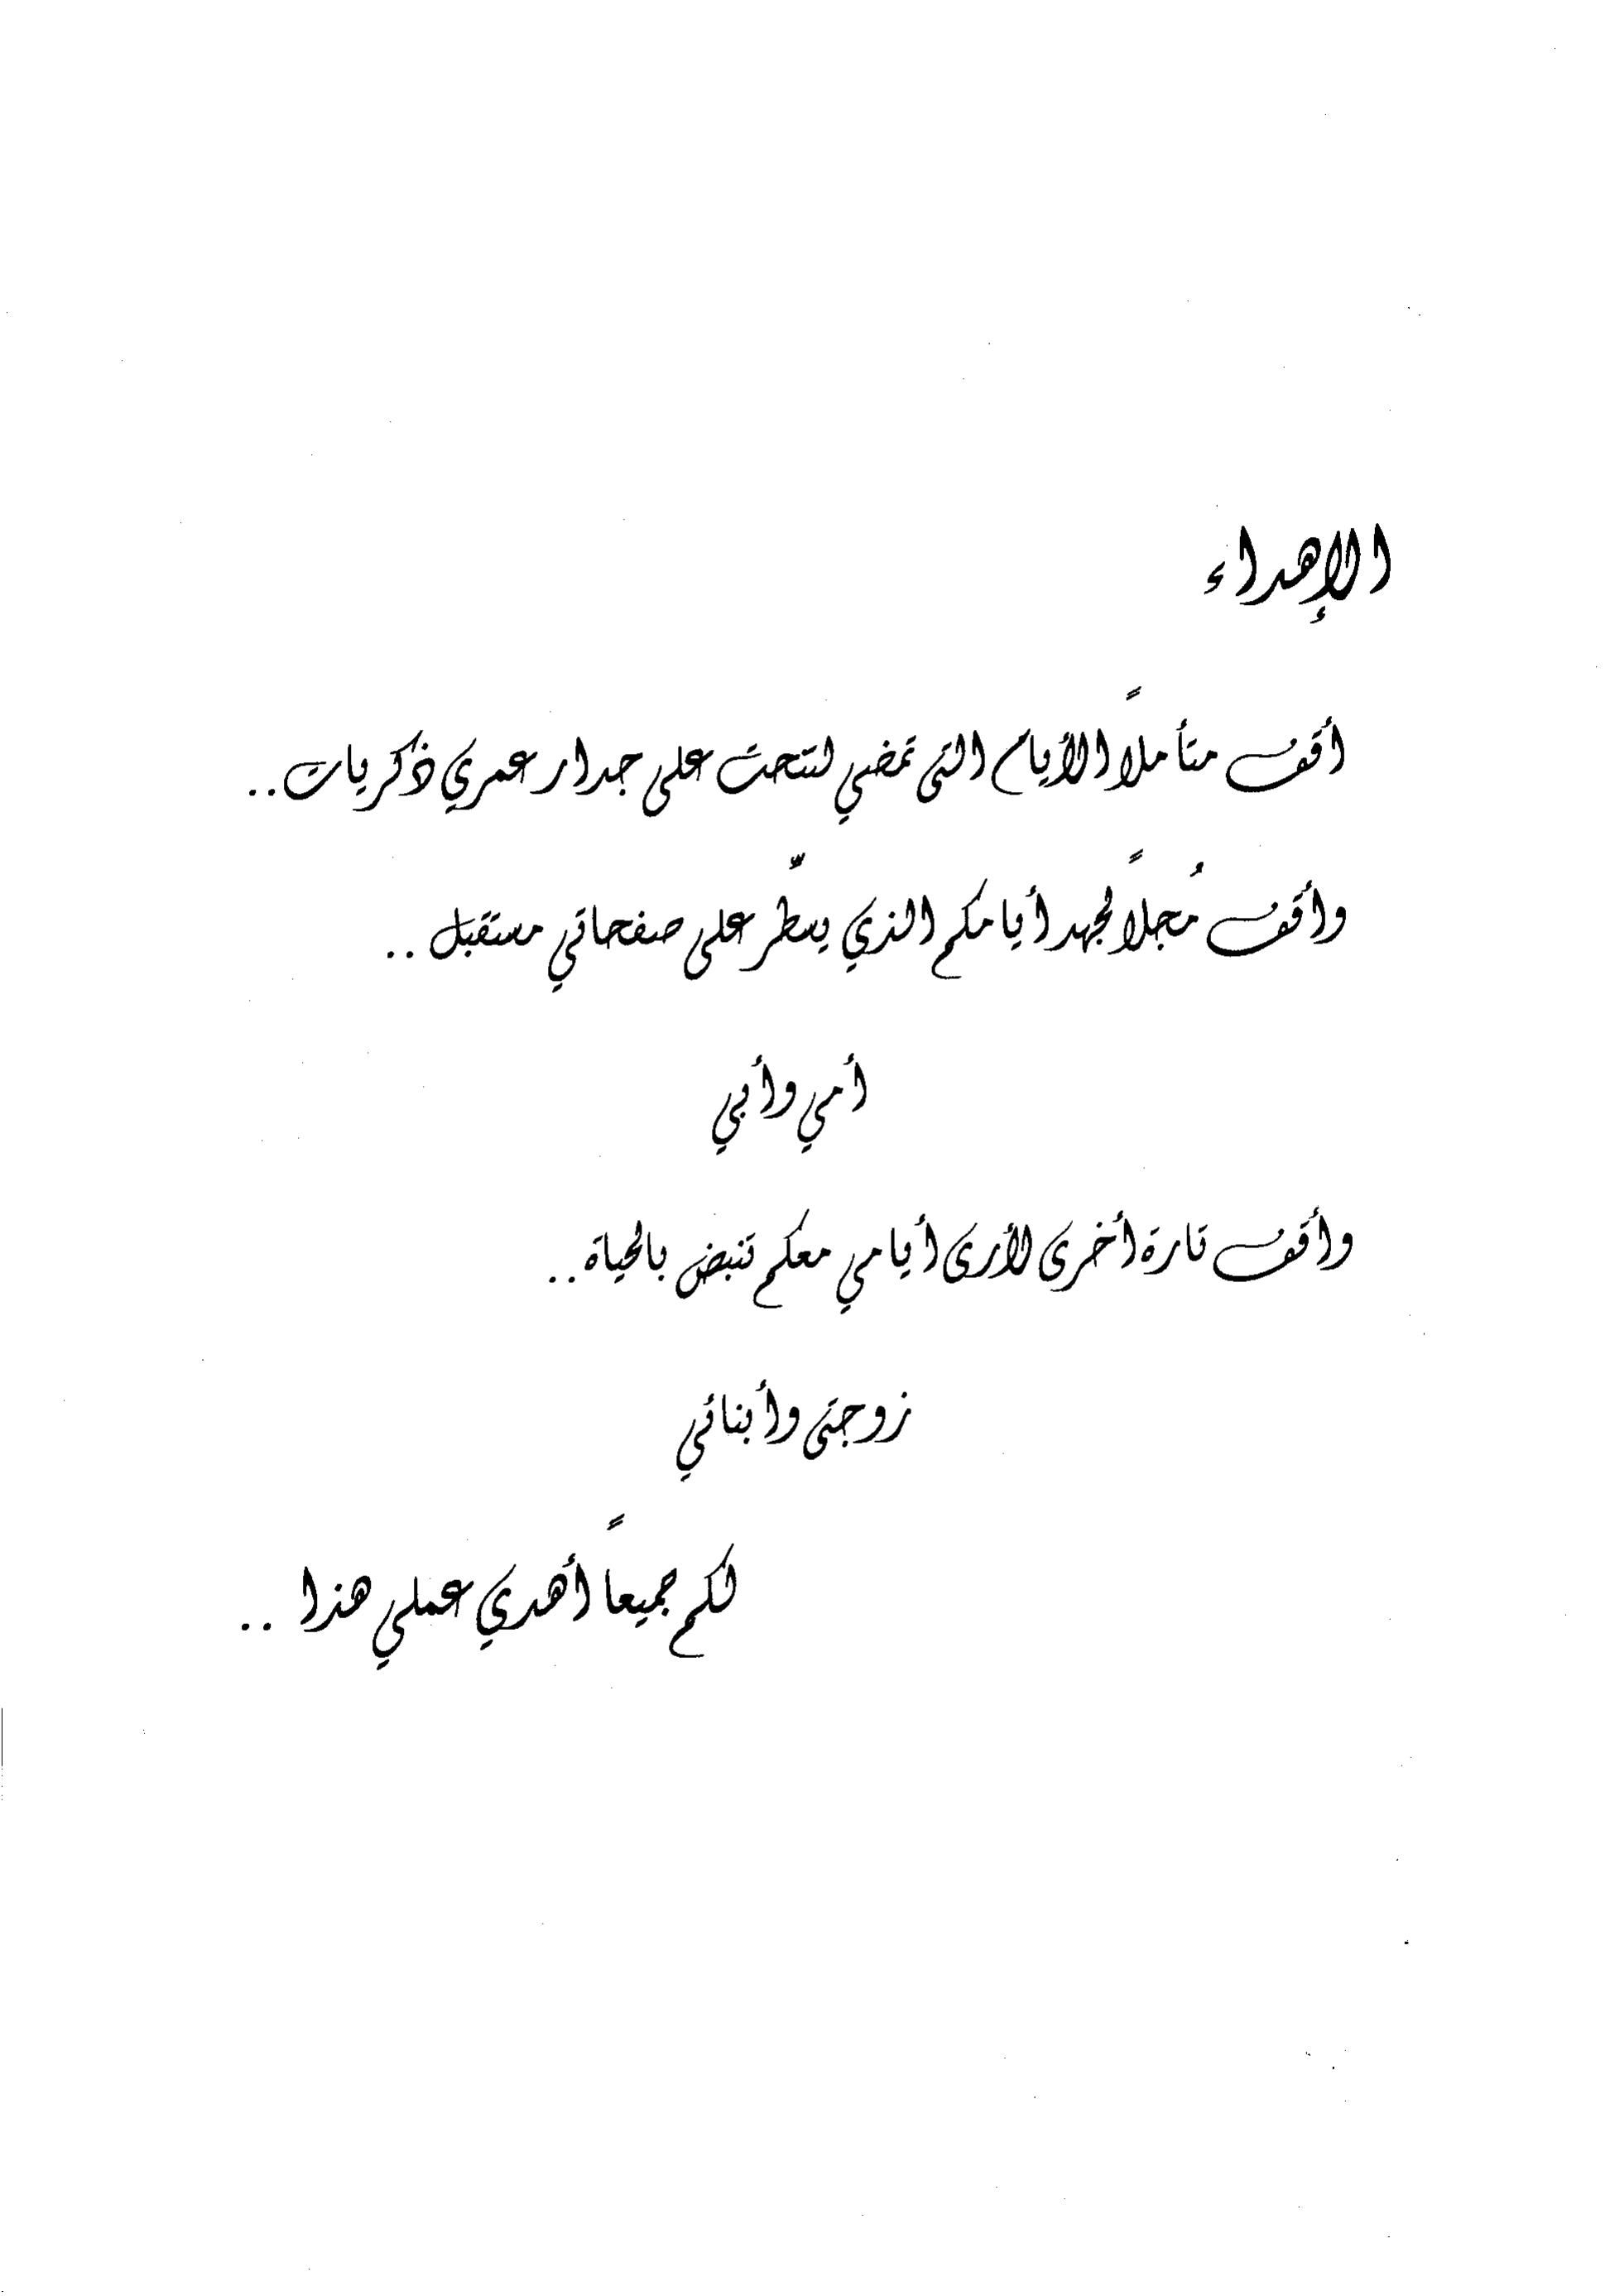 الإهداء
أقف متأملاً الأيام التي تمضي لتنحت على جدار عمري ذكريات..
وأقف مُجلاً لجهد أيامكم الذي يسطّر على صفحاتي مستقبل ..
أمي وأبي
وأقف تارة أخرى لأرى أيامي معكم تنبض بالحياة..
زوجتي وأبنائي
لكم جميعاً أهدي عملي هذا ..